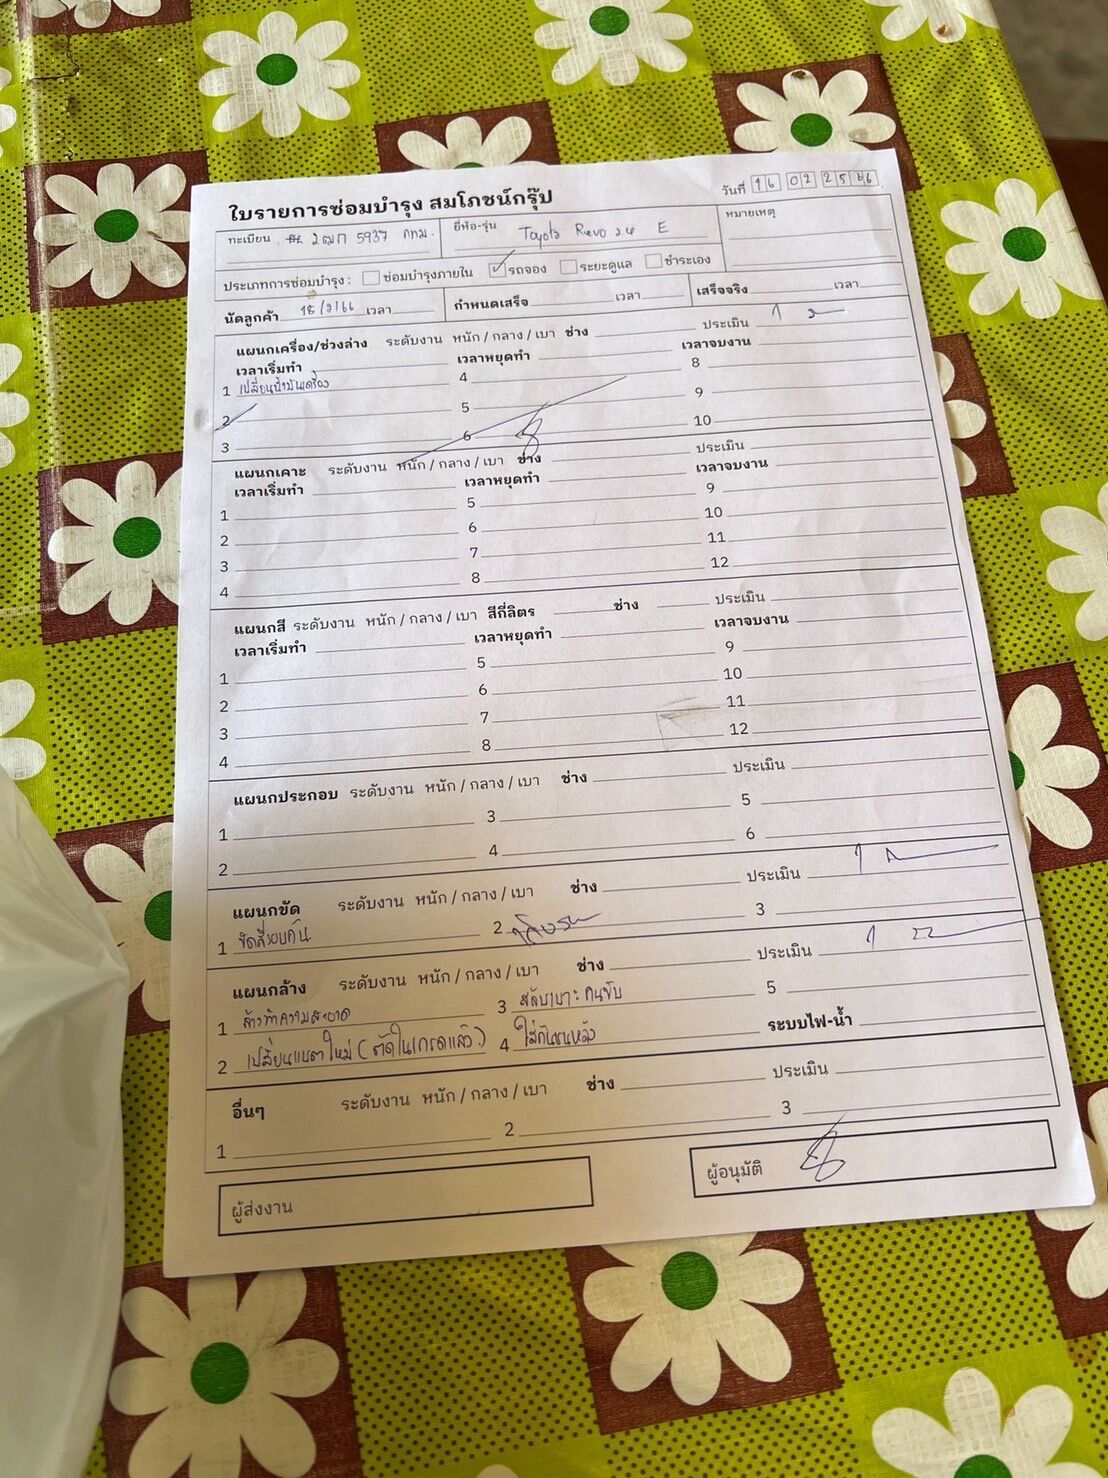 ใบรายการซ่อมบำรุง สมโภชน์กรุ๊ป
วันที่ 16 02 2566
ทะเบียน 2ฒก 5937 กทม.
ยี่ห้อ-รุ่น Toyota Revo 2.4 E
หมายเหตุ
ประเภทการซ่อมบำรุง : ซ่อมบำรุงภายใน รถจอง ระยะดูแล ชำระเอง
นัดลูกค้า 18/2/66 เวลา กำหนดเสร็จ เวลา เสร็จจริง เวลา
แผนกเครื่อง/ช่วงล่าง ระดับงาน หนัก / กลาง / เบา ช่าง ประเมิน
เวลาเริ่มทำ เวลาหยุดทำ เวลาจบงาน
1 เปลี่ยนน้ำมันเครื่อง 4 8
2 5 9
3 6 10
แผนกเคาะ ระดับงาน หนัก / กลาง / เบา ช่าง ประเมิน
เวลาเริ่มทำ เวลาหยุดทำ เวลาจบงาน
1 5 9
2 6 10
3 7 11
4 8 12
แผนกสี ระดับงาน หนัก / กลาง / เบา สีกี่ลิตร ช่าง ประเมิน
เวลาเริ่มทำ เวลาหยุดทำ เวลาจบงาน
1 5 9
2 6 10
3 7 11
4 8 12
แผนกประกอบ ระดับงาน หนัก / กลาง / เบา ช่าง ประเมิน
1 3 5
2 4 6
แผนกขัด ระดับงาน หนัก / กลาง / เบา ช่าง ประเมิน
1 ขัดสีรอบคัน 2 3
แผนกล้าง ระดับงาน หนัก / กลาง / เบา ช่าง ประเมิน
1 ล้างทำความสะอาด 3 สลับเบาะคนขับ 5
2 เปลี่ยนแบตใหม่ (ตัดในเกรดแล้ว) 4 ใส่กันชนหลัง ระบบไฟ-น้ำ
อื่นๆ ระดับงาน หนัก / กลาง / เบา ช่าง ประเมิน
1 2 3
ผู้ส่งงาน
ผู้อนุมัติ